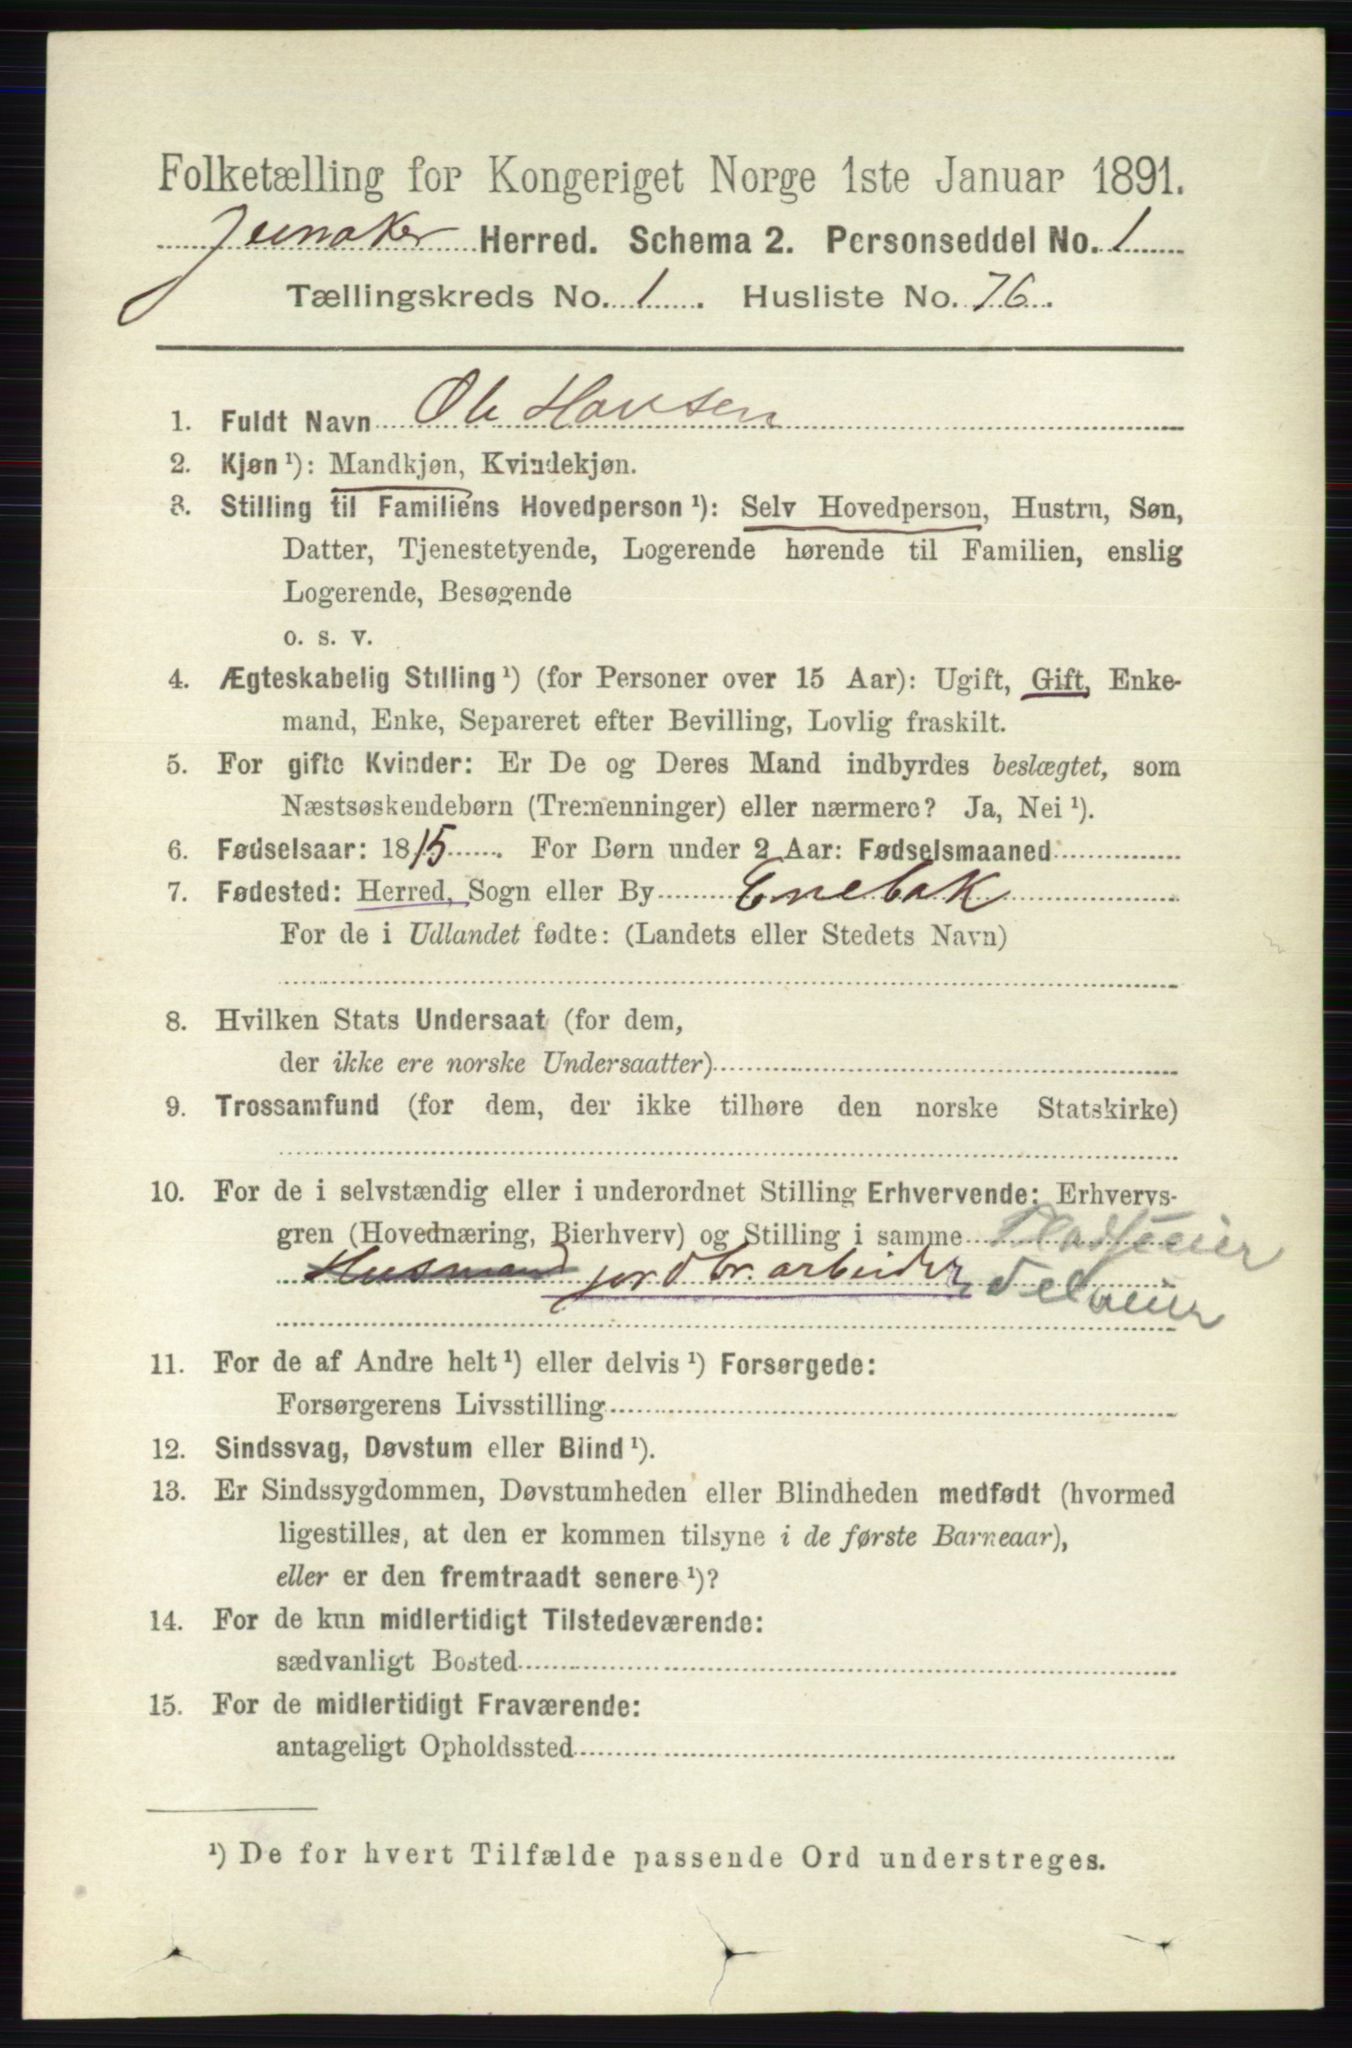 Folketælling for Kongeriget Norge 1ste Januar 1891.
Jevnaker Herred. Schema 2. Personseddel No. 1
Tællingskreds No. 1. Husliste No. 76.
1. Fuldt Navn Ole Hansen
2. Kjøn ¹): Mandkjøn, Kvindekjøn.
3. Stilling til Familiens Hovedperson ¹): Selv Hovedperson, Hustru, Søn,
Datter, Tjenestetyende, Logerende hørende til Familien, enslig
Logerende, Besøgende
o. s. v.
4. Ægteskabelig Stilling ¹) (for Personer over 15 Aar): Ugift, Gift, Enke-
mand, Enke, Separeret efter Bevilling, Lovlig fraskilt.
5. For gifte Kvinder: Er De og Deres Mand indbyrdes beslægtet, som
Næstsøskendebørn (Tremenninger) eller nærmere? Ja, Nei ¹).
6. Fødselsaar: 1815. For Børn under 2 Aar: Fødselsmaaned
7. Fødested: Herred, Sogn eller By Enebak
For de i Udlandet fødte: (Landets eller Stedets Navn)
8. Hvilken Stats Undersaat (for dem,
der ikke ere norske Undersaatter)
9. Trossamfund (for dem, der ikke tilhøre den norske Statskirke)
10. For de i selvstændig eller i underordnet Stilling Erhvervende: Erhvervs-
gren (Hovednæring, Bierhverv) og Stilling i samme Pladseier
Husmand jordbr. arbeider Selveier
11. For de af Andre helt ¹) eller delvis ¹) Forsørgede:
Forsørgerens Livsstilling
12. Sindssvag, Døvstum eller Blind ¹).
13. Er Sindssygdommen, Døvstumheden eller Blindheden medfødt (hvormed
ligestilles, at den er kommen tilsyne i de første Barneaar),
eller er den fremtraadt senere ¹)?
14. For de kun midlertidigt Tilstedeværende:
sædvanligt Bosted
15. For de midlertidigt Fraværende:
antageligt Opholdssted
¹) De for hvert Tilfælde passende Ord understreges.